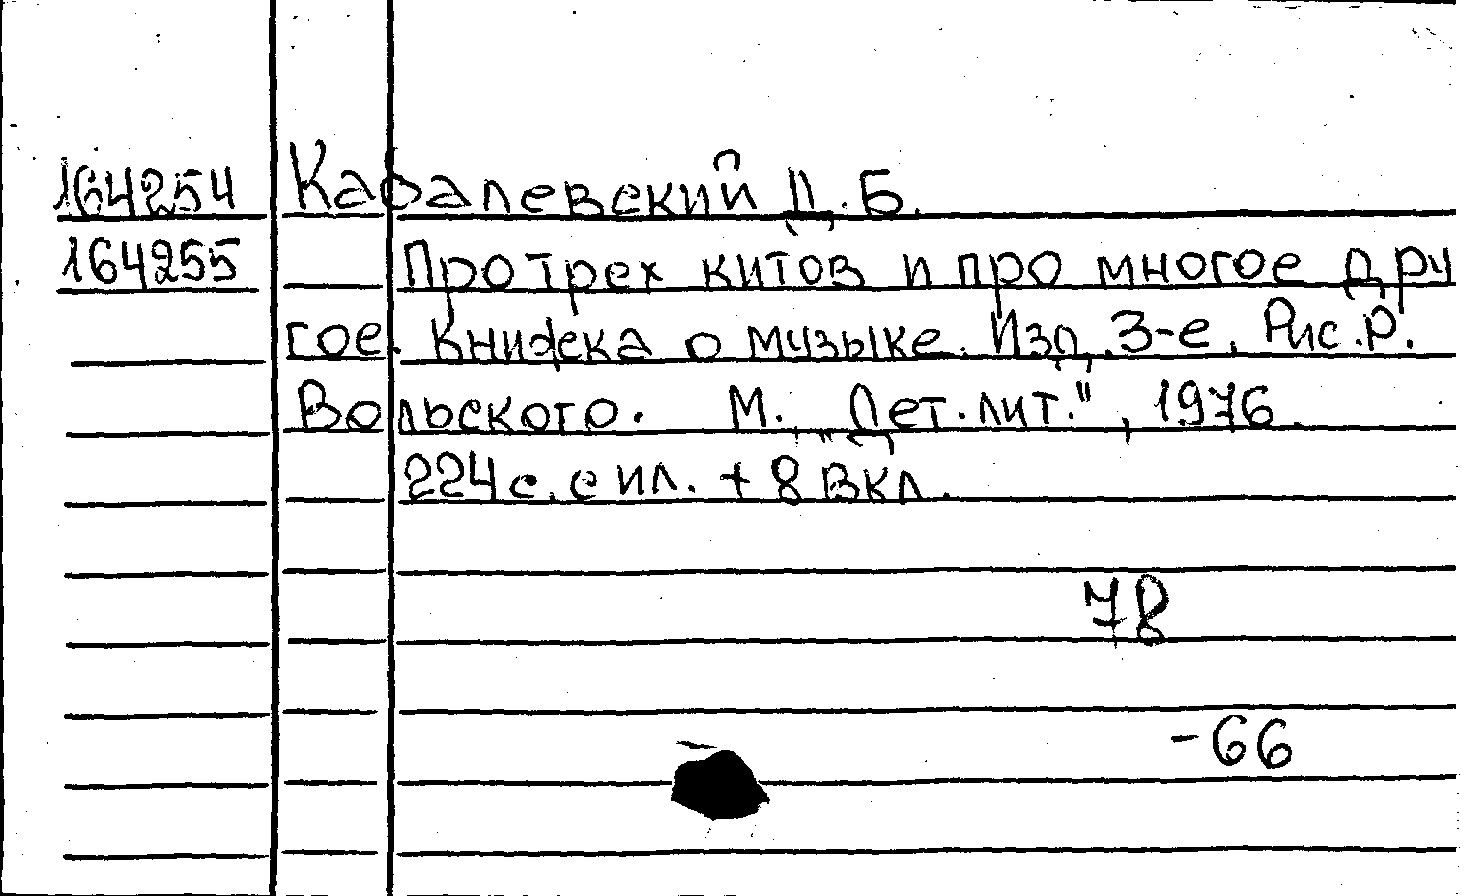 164254 Кабалевский Д.Б.
164255 Про трех китов и про многое дру
гое. Книжка о музыке. Изд. 3-е. Рис. Р.
Вольского. М., "Дет. лит.", 1976.
224 с. с ил. + 8 вкл.
78
-66